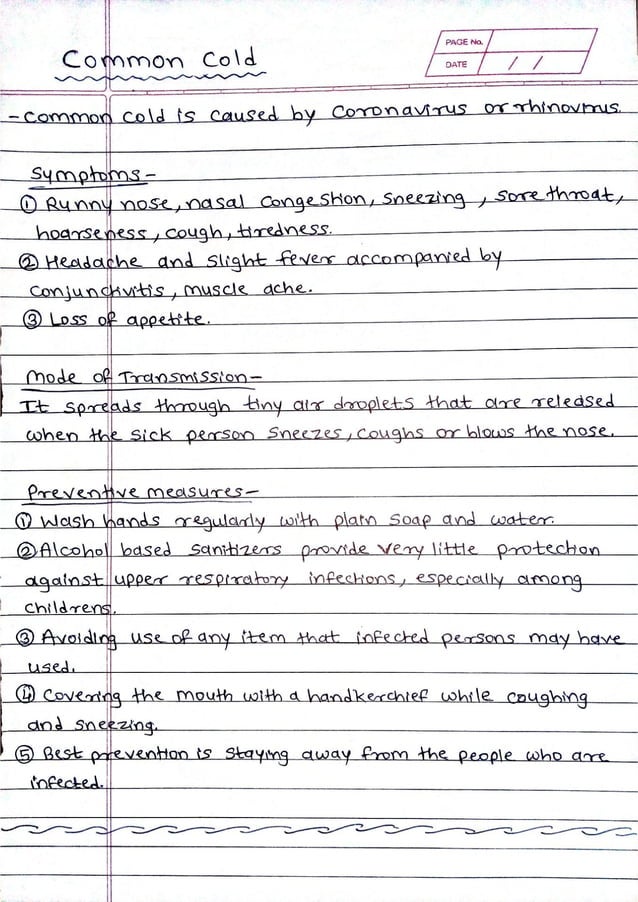 Common Cold
PAGE No.
DATE / /
- Common cold is caused by Coronavirus or rhinovirus.
Symptoms -
① Runny nose, nasal congestion, sneezing, sore throat,
hoarseness, cough, tiredness.
② Headache and slight fever accompanied by
conjunctivitis, muscle ache.
③ Loss of appetite.
Mode of Transmission -
It spreads through tiny air droplets that are released
when the sick person sneezes, coughs or blows the nose.
Preventive measures -
① Wash hands regularly with plain soap and water.
② Alcohol based sanitizers provide very little protection
against upper respiratory infections, especially among
childrens.
③ Avoiding use of any item that infected persons may have
used.
④ Covering the mouth with a handkerchief while coughing
and sneezing.
⑤ Best prevention is staying away from the people who are
infected.